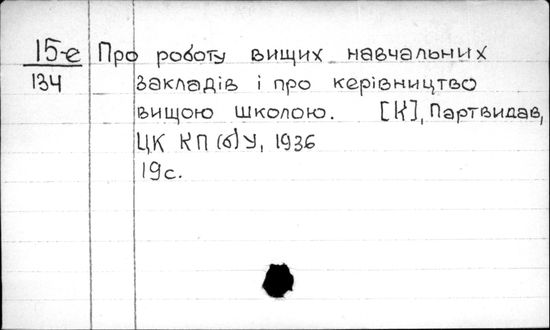 15-е Про роботу вищих навчальних
134 закладів і про керівництво
вищою школою. [К], Партвидав,
ЦК КП(б)У, 1936
19с.